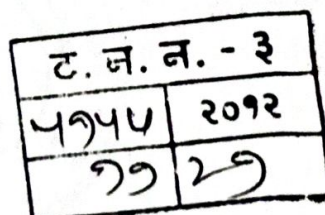 ट. न. न. - ३
५१५५ २०१२
११ २१